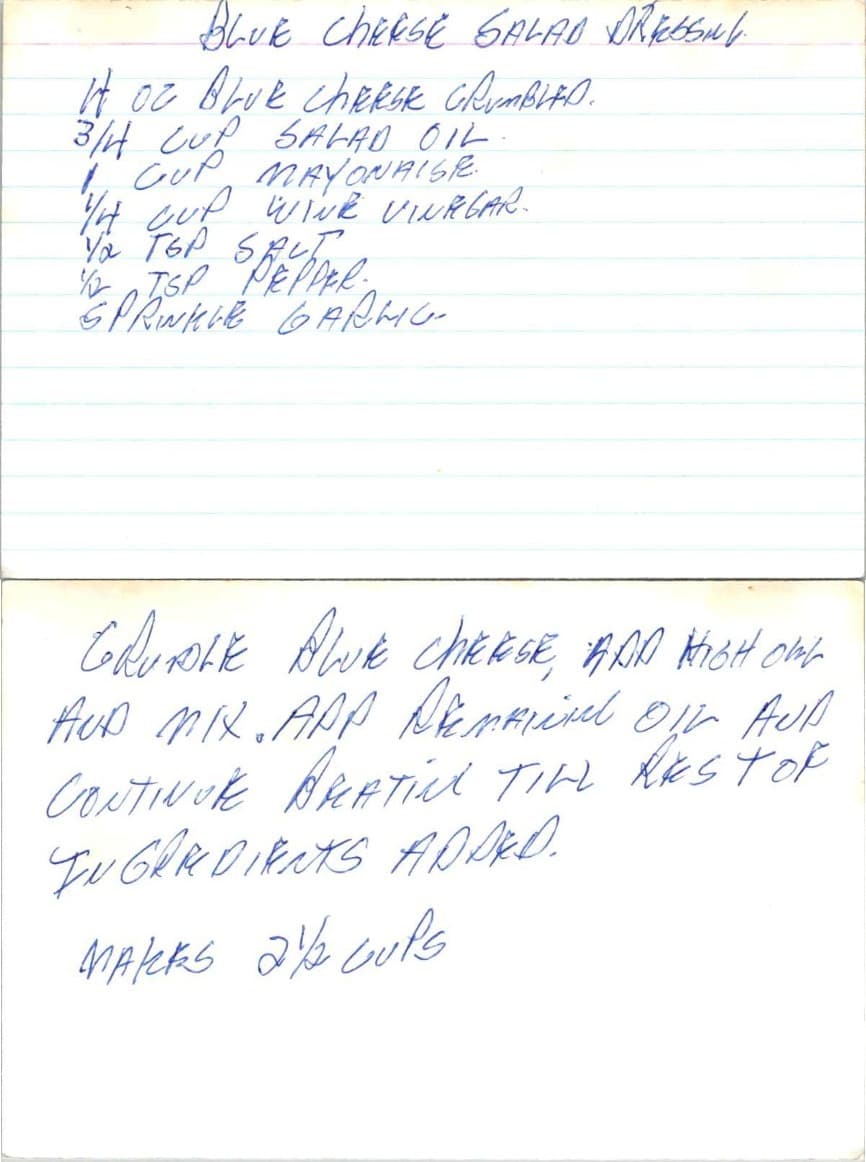 BLUE CHEESE SALAD DRESSING.
4 OZ BLUE CHEESE CRUMBLED.
3/4 CUP SALAD OIL.
1 CUP MAYONAISE.
1/4 CUP WINE VINEGAR.
1/2 TSP SALT
1/2 TSP PEPPER.
SPRINKLE GARLIC
CRUMBLE BLUE CHEESE, ADD
AND MIX. ADD REMAINING OIL AND
CONTINUE BEATING TILL REST OF
INGREDIENTS ADDED.
MAKES 2 1/2 CUPS